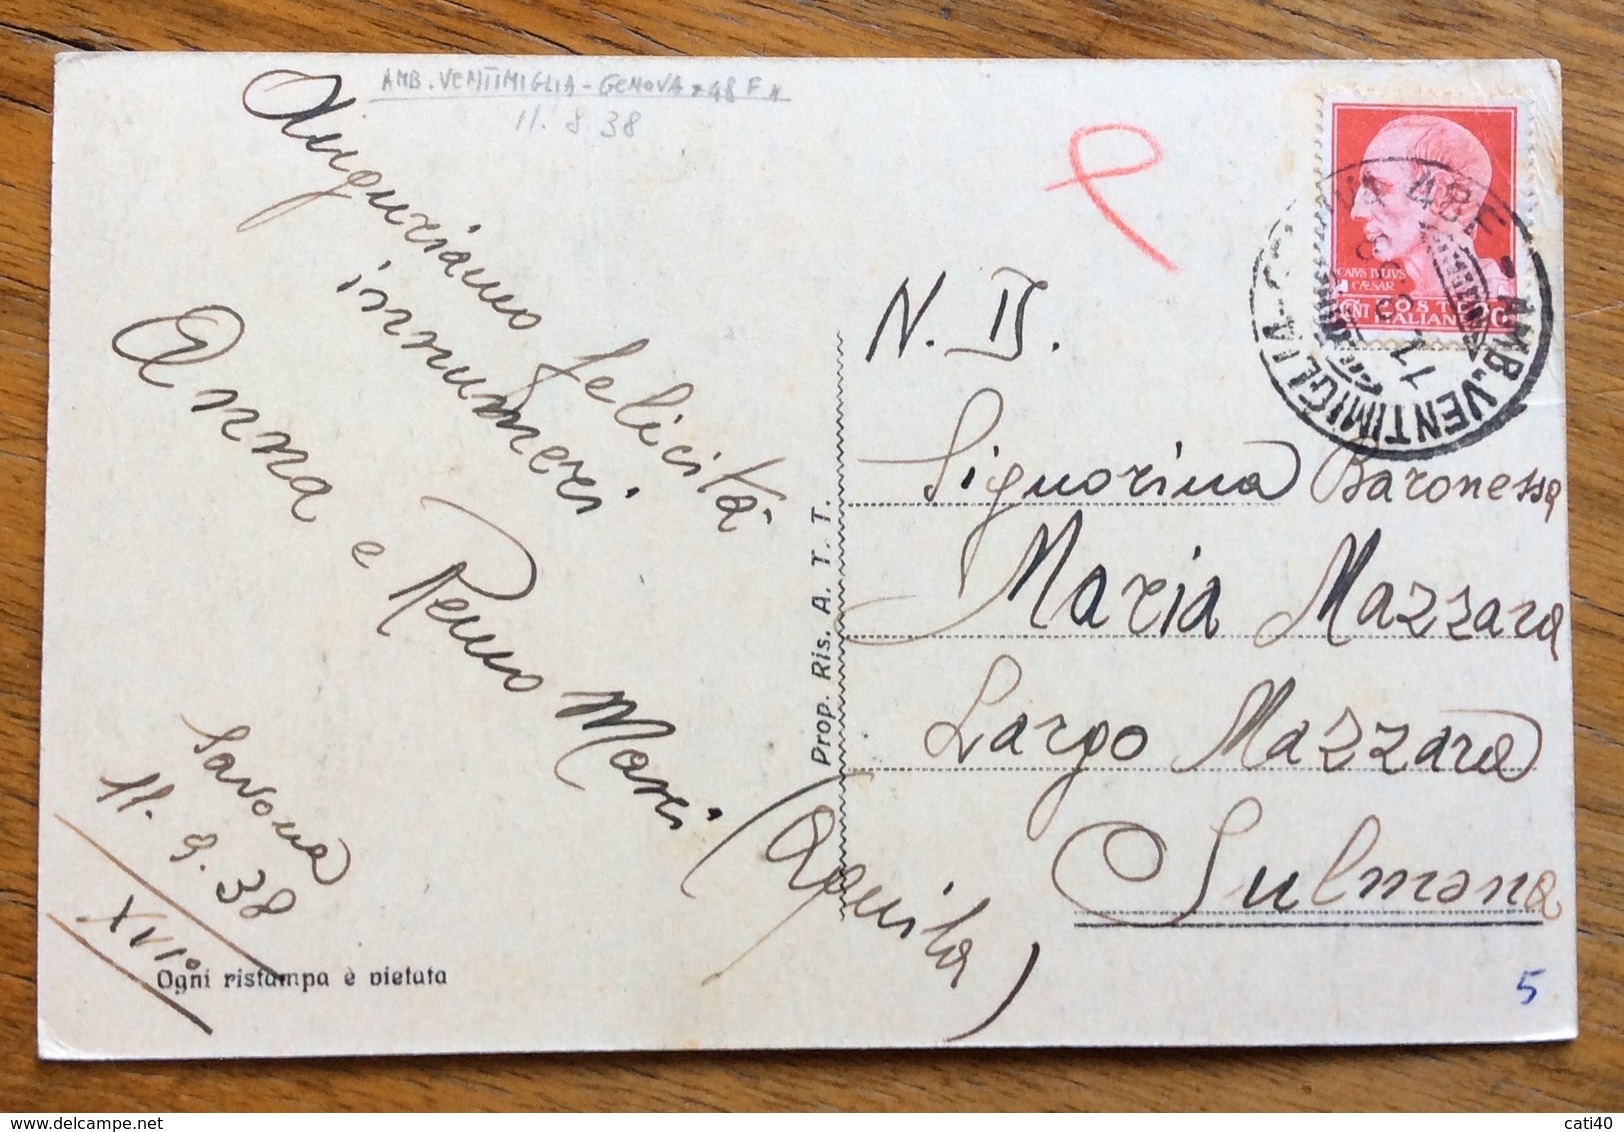 AMB. VENTIMIGLIA - GENOVA 48 F
11. 8. 38
Auguriamo felicità
innumeri
Anna e Remo Mori
Savona
11. 9. 38
XVI°
Ogni ristampa è vietata
Prop. Ris. A. T. T.
CAIVS IVLIVS
CÆSAR
CENT 20
POSTE
ITALIANE
AMB. VENTIMIGLIA-GENOVA 48 F
N. D.
Signorina Baronessa
Maria Mazzara
Largo Mazzara
Sulmona
(Aquila)
5
visit my store
cati40